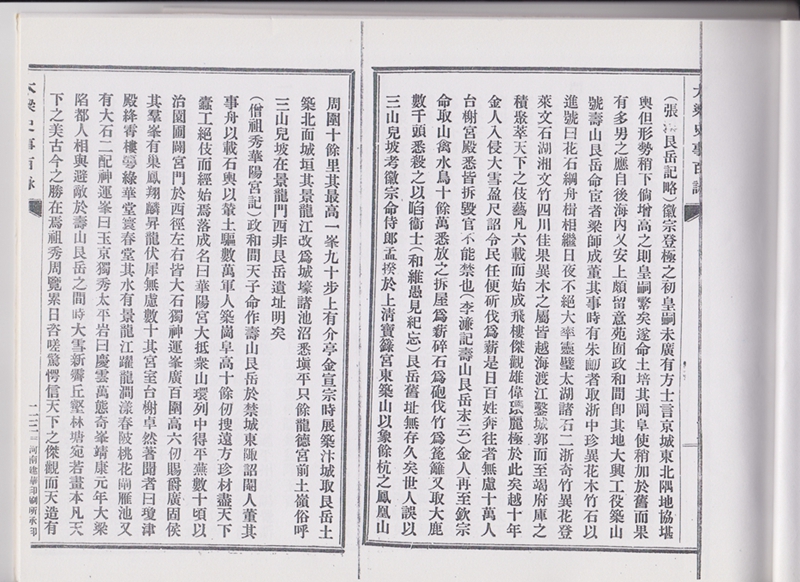 大梁史事百詠
（張淏艮岳記略）徽宗登極之初皇嗣未廣有方士言京城東北隅地協堪
輿但形勢稍下倘增高之則皇嗣繁矣遂命土培其岡阜使稍加於舊而果
有多男之應自後海內乂安上頗留意苑囿政和間卽其地大興工役築山
號壽山艮岳命宦者梁師成董其事時有朱勔者取浙中珍異花木竹石以
進號曰花石綱舟楫相繼日夜不絕大率靈璧太湖諸石二浙奇竹異花登
萊文石湖湘文竹四川佳果異木之屬皆越海渡江鑿城郭而至竭府庫之
積聚萃天下之伎藝凡六載而始成飛樓傑觀雄偉瓌麗極於此矣越十年
金人入侵大雪盈尺詔令民任便斫伐爲薪是日百姓奔往者無慮十萬人
台榭宮殿悉皆拆毀官不能禁也（李濂記壽山艮岳末云）金人再至欽宗
命取山禽水鳥十餘萬悉放之拆屋爲薪碎石爲砲伐竹爲篦籬又取大鹿
數千頭悉殺之以啗衞士（和維愚見紀忘）艮岳舊址無存久矣世人誤以
三山兒坡考徽宗命侍郎孟揆於上清寶籙宮東築山以象餘杭之鳳凰山
周圍十餘里其最高一峯九十步上有介亭金宣宗時展築汴城取艮岳土
築北面城垣其景龍江改爲城壕諸池沼悉塡平只餘龍德宮前土嶺俗呼
三山兒坡在景龍門西非艮岳遺址明矣
（僧祖秀華陽宮記）政和間天子命作壽山艮岳於禁城東陬詔閹人董其
事舟以載石輿以輦土驅數萬軍人築崗阜高十餘仞搜遠方珍材盡天下
蠹工絕伎而經始焉落成名曰華陽宮大抵衆山環列中得平蕪數十頃以
治園圃闢宮門於西徑左右皆大石獨神運峯廣百圍高六仞賜爵廣固侯
其羣峯有巢鳳翔麟昇龍伏犀無慮數十其宮室台榭卓然著聞者曰瓊津
殿絳霄樓蕚綠華堂寰春堂其水有景龍江躍龍澗漾春陂桃花閘雁池又
有大石二配神運峯曰玉京獨秀太平岩曰慶雲萬態奇峯靖康元年大梁
陷都人相與避敵於壽山艮岳之間時大雪新霽丘壑林塘宛若畫本凡天
下之美古今之勝在焉祖秀周覽累日咨嗟驚愕信天下之傑觀而天造有
大梁史事百詠
二三
河南建華印刷所承印